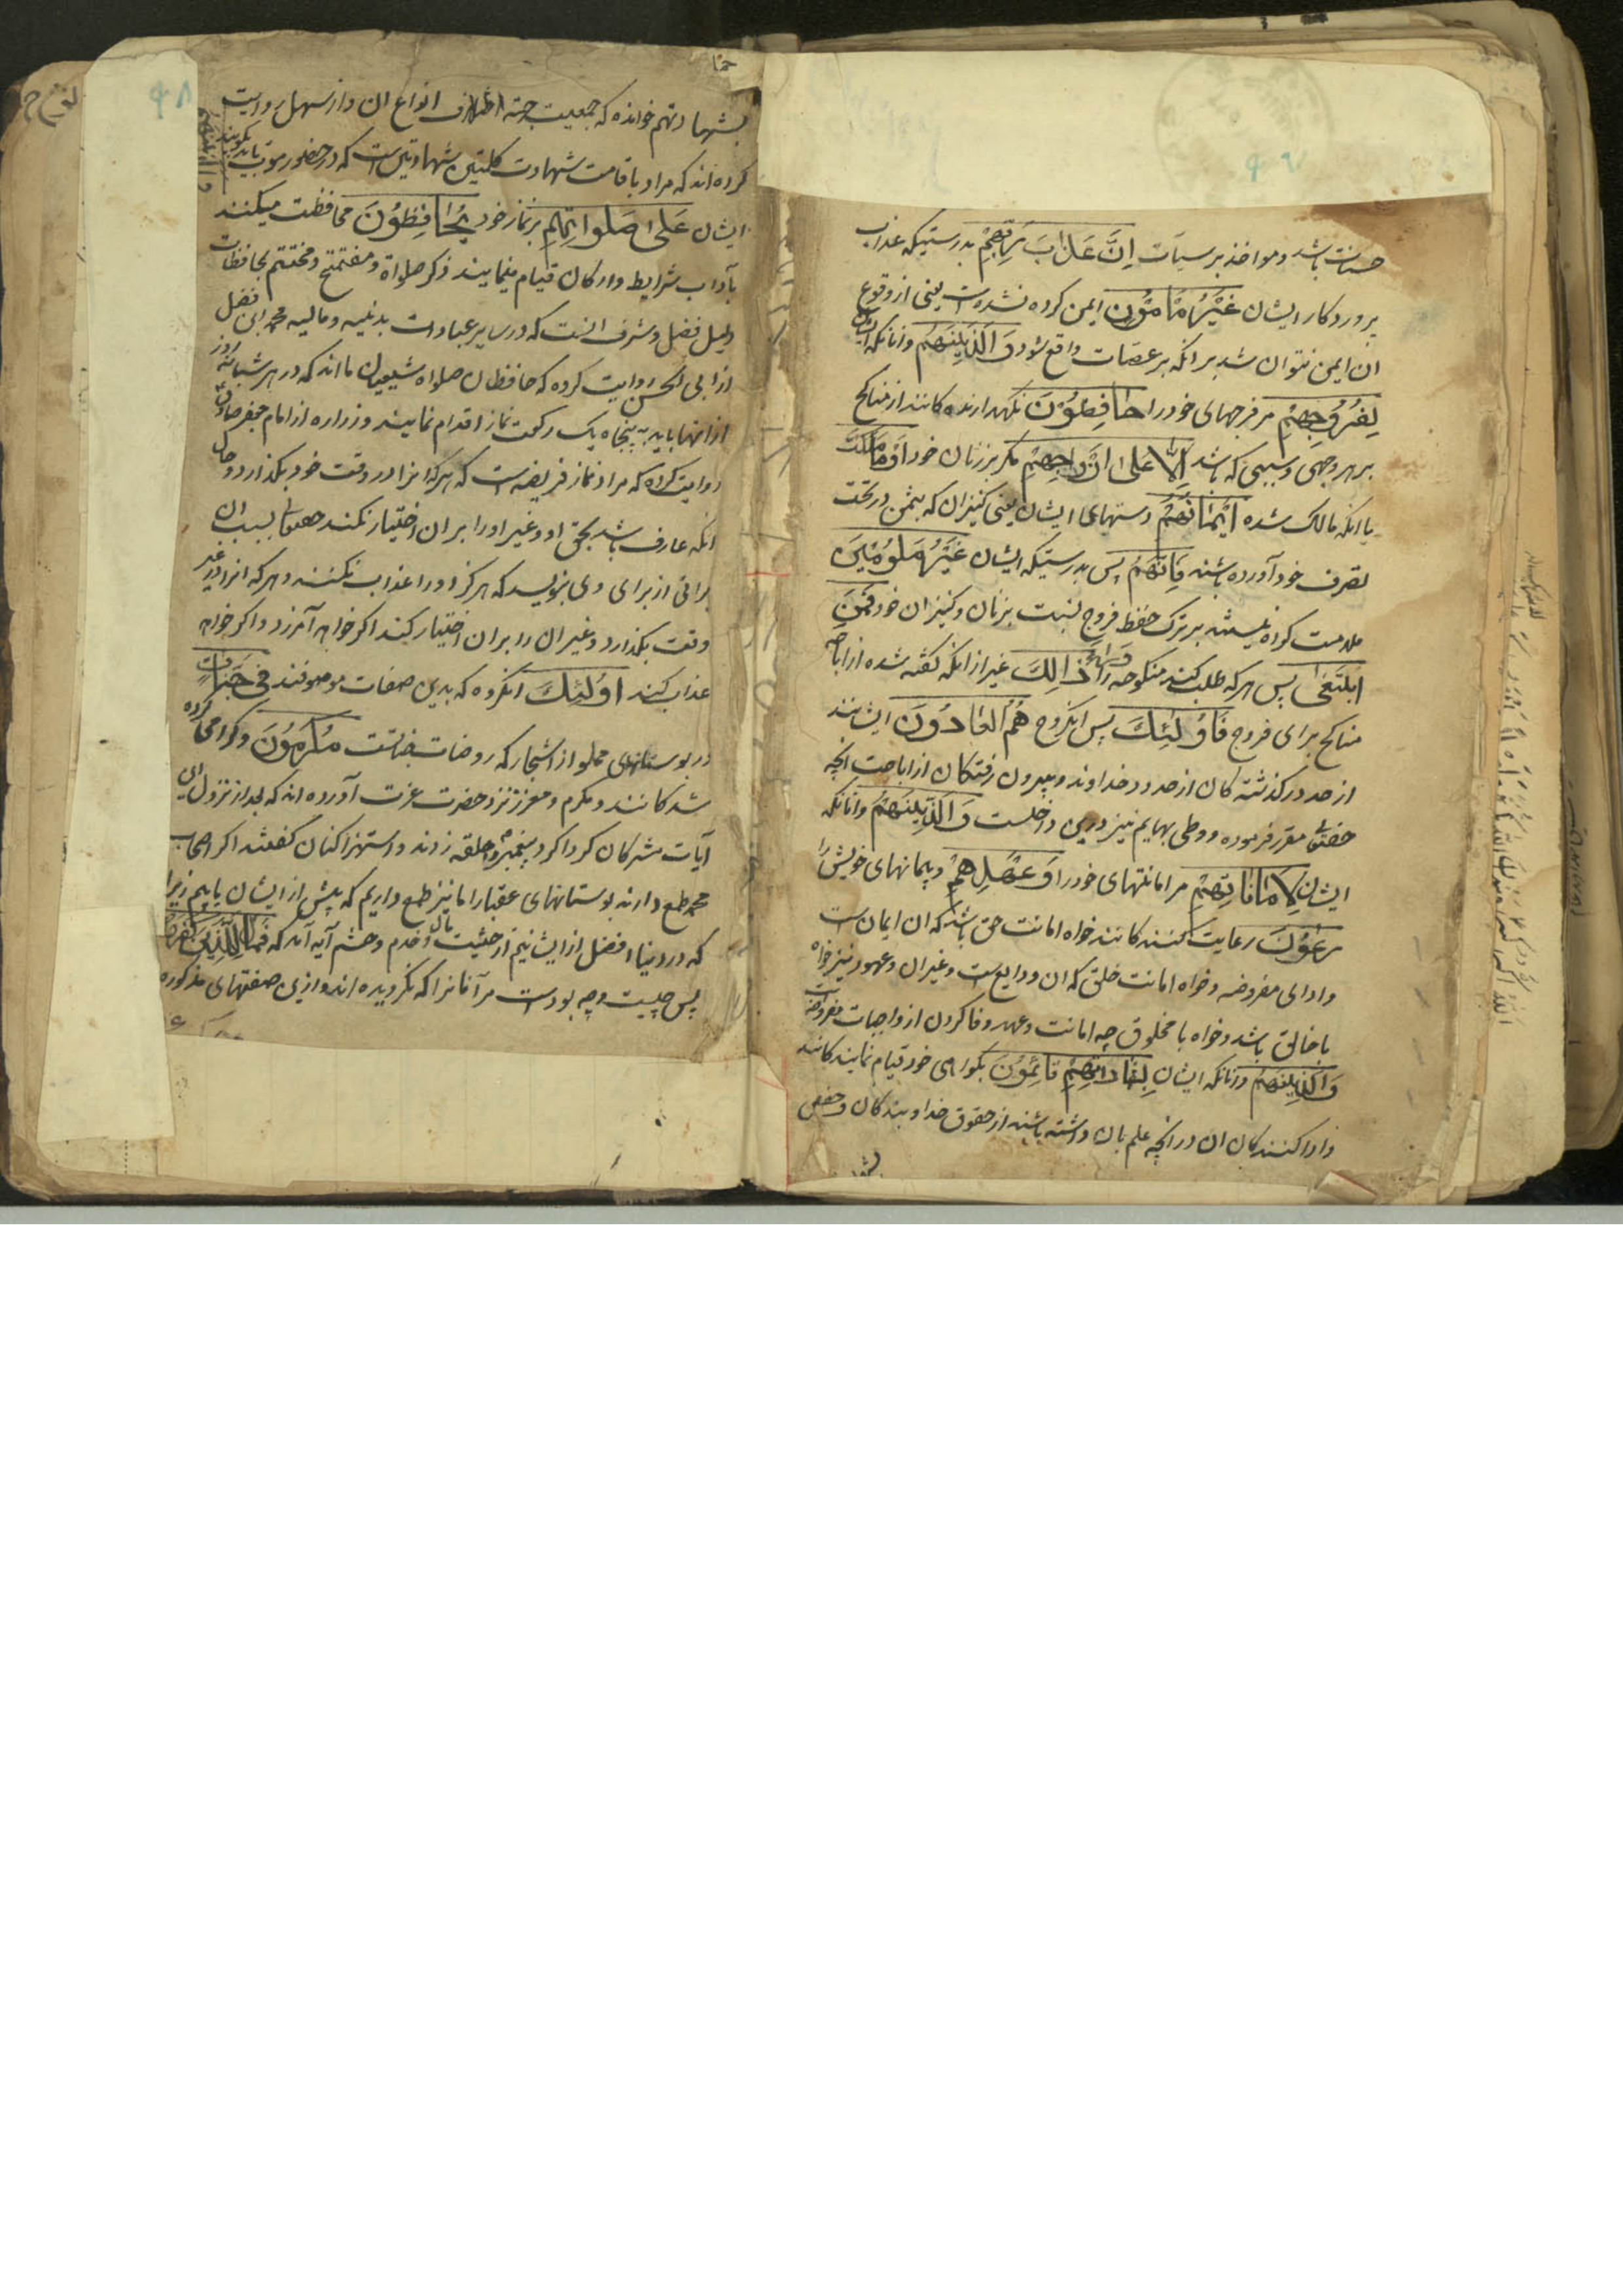 حسنات باشد ومواخذ بر سیآت اِنَّ عَذابَ رَبِّهِمْ بدرستیکه عذاب
پروردکار ایشان غَیْرُ مَأمُونٍ ایمن کرده نشده است یعنی از وقوع
ان ایمن نتوان شد برانکه بر عصات واقع شود وَ الَّذِینَهُمْ وانانکه ایشان
لِفُرُوجِهِمْ مر فرجهای خود را حافِظُوْنَ نکهدارنده کانند از مناکح
بر هر وجهی وسببی که باشد اِلّا عَلی اَزْواجِهِمْ مکر بر زنان خود اَوْ ما مَلَکَتْ
یا انکه مالک شده اَیْمانُهُمْ دستهای ایشان یعنی کنیزان که بثمن در تحت
تصرف خود آورده باشند فَاِنَّهُمْ پس بدرستیکه ایشان غَیْرُ مَلُوْمِیْنَ
ملامت کرده نیستند بر ترک حفظ فروج نسبت بزنان وکنیزان خود فَمَنِ
ابْتَغی پس هر که طلب کند منکوحه وَراءَ ذالِکَ غیر از انکه کفته شده از اباحه
مناکح برای فروج فَاُولئِکَ پس انکروه هُمُ العادُونَ ایشانند
از حد در کذشته کان از حدود خداوند وبیرون رفتکان از اباحت انچه
حقتعالی مقرر فرموده ووطی بهایم نیز درین داخلست وَالَّذِینَهُمْ وانانکه
ایشان لِاَماناتِهِمْ مر امانتهای خود را وَعَهْدِهِمْ وپیمانهای خویش را
رعُوْنَ رعایت کننده کانند خواه امانت حق باشد که ان ایمان است
وادای مفروضه وخواه امانت خلق که ان ودایع است وغیر ان وعهود نیز خواه
با خالق باشد وخواه با مخلوق چه امانت وعهد وفا کردن از واجبات مفروضه است
وَالَّذِینَهُمْ وانانکه ایشان بِشَهاداتِهِمْ قائِمُوْنَ بکواهی خود قیام نماینده کانند
وادا کنندکان ان در انچه علم بان داشته باشند از حقوق خدا وبندکان وحفص
بشهاداتهم خوانده که جمعیت جهة اختلاف انواع ان واز سهل روایت
کرده اند که مراد باقامت شهادت کلمتین شهادتین است که در حضور موت باید بکویند
ایشان عَلی صَلَواتِهِمْ بر نماز خود یُحافِظُوْنَ محافظت میکنند
بآداب شرایط وارکان قیام مینمایند ذکر صلواة ومفتتح ومختتم بحافظات
دلیل فضل وشرف انست که در سایر عبادات بدنیه ومالیه محمد ابن فضل
از ابی الحسن روایت کرده که حافظان صلواة شیعیان ما اند که در هر شبانه روز
ازانها باید به پنجاه یک رکعت نماز اقدام نمایند وزراره از امام جعفر صادق
روایت کرده که مراد نماز فریضه است که هر که انرا در وقت خود بکذارد وحال
انکه عارف باشد بحق او وغیر او را بر ان اختیار نکند حقتعالی بسبب ان
براتی از برای وی بنویسد که هرکز او را عذاب نکنند وهر که انرا در غیر
وقت بکذارد وغیر ان را بر ان اختیار کند اکر خواهد آمرزد واکر خواهد
عذاب کند اوُلئِکَ انکروه که بدین صفات موصوفند فی جَنّاتٍ
در بوستانهای مملو از اشجار که روضات جنانست مُکْرَمُوْنَ وکرامی کرده
شده کانند ومکرم ومعزز نزد حضرت عزت آورده اند که بعد از نزول این
آیات مشرکان کرداکرد پیغمبر حلقه زدند واستهزا کنان کفتند اکر اصحاب
محمد طمع دارند بوستانهای عقبا را ما نیز طمع داریم که بیش از ایشان یابیم زیرا
که در دنیا افضل از ایشانیم از حیثیت مال وخدم وحشم آیه آمد که فَمالِ الَّذِیْنَ کَفَرُوا
پس چیست وچه بوده است مر آنانرا که نکرویده اند وازین صفتهای مذکوره